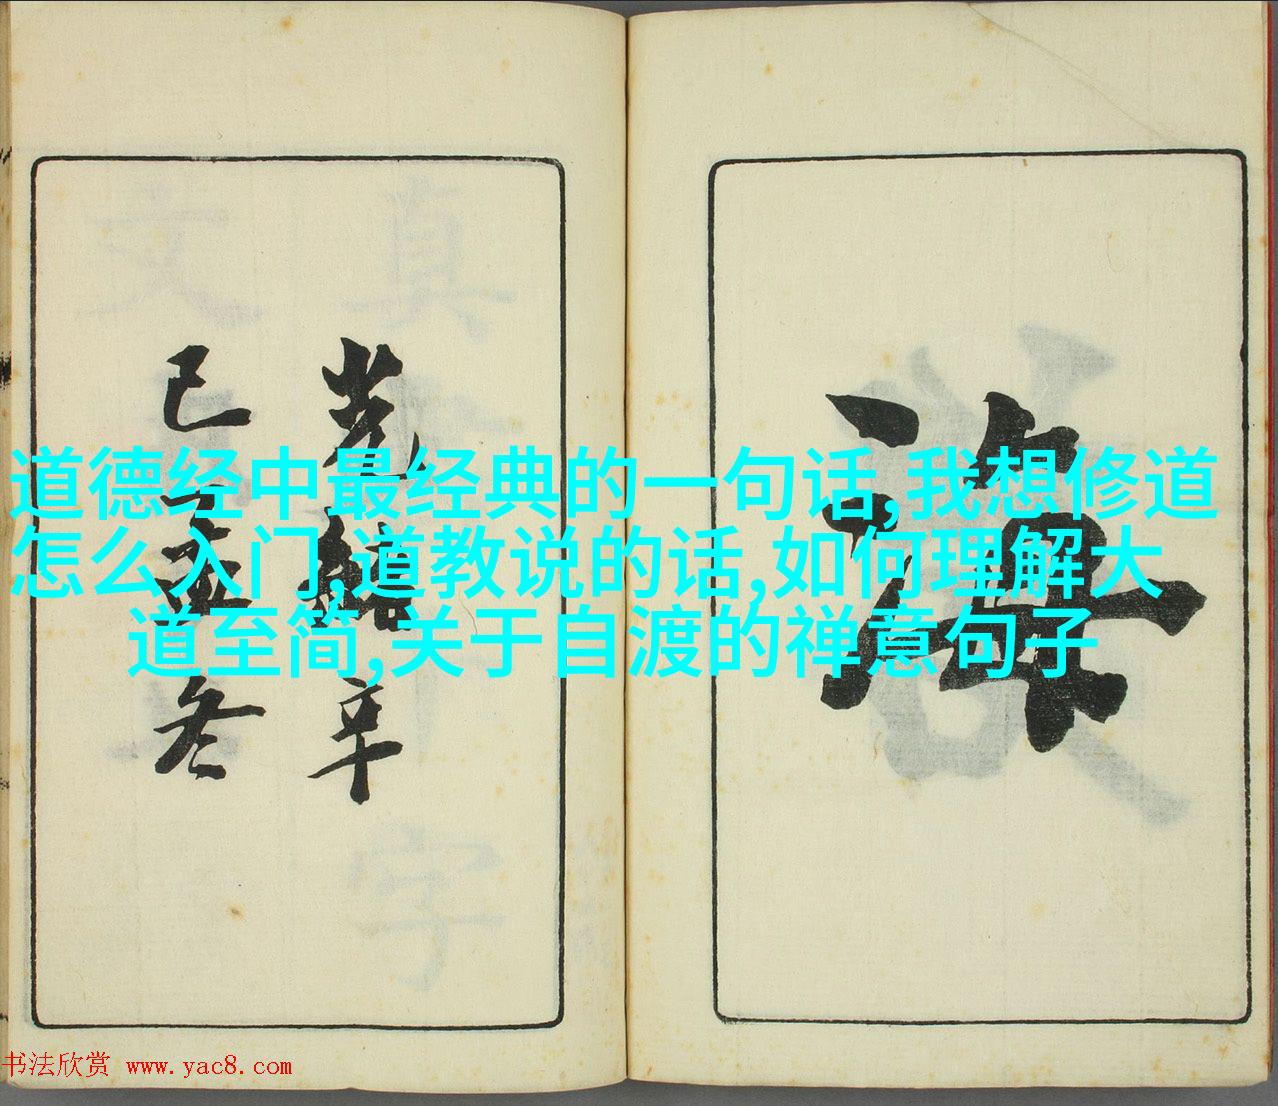 道德经中最经典的一句话,我想修道
怎么入门,道教说的话,如何理解大
道至简,关于自渡的禅意句子
光緒辛
巳孟冬
书法欣赏 www.yac8.com